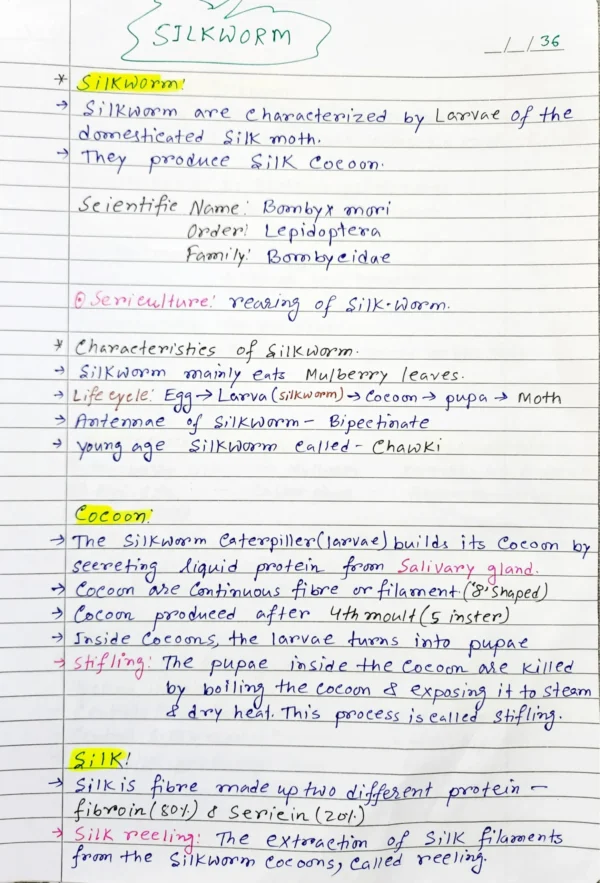 SILKWORM
_/_/36
* Silkworm:
→ Silkworm are characterized by Larvae of the
domesticated Silk moth.
→ They produce Silk Cocoon.
Scientific Name: Bombyx mori
Order: Lepidoptera
Family: Bombycidae
⊙ Sericulture: rearing of Silk-worm.
* Characteristics of Silkworm.
→ Silkworm mainly eats Mulberry leaves.
→ Life cycle: Egg → Larva (silkworm) → Cocoon → pupa → Moth
→ Antennae of Silkworm – Bipectinate
→ young age Silkworm called – Chawki
Cocoon:
→ The Silkworm Caterpiller (larvae) builds its Cocoon by
secreting liquid protein from Salivary gland.
→ Cocoon are Continuous fibre or filament ('8' Shaped)
→ Cocoon produced after 4th moult (5 inster)
→ Inside Cocoons, the larvae turns into pupae
→ Stifling: The pupae inside the Cocoon are killed
by boiling the cocoon & exposing it to steam
& dry heat. This process is called stifling.
Silk:
→ Silk is fibre made up two different protein –
fibroin (80%) & Sericin (20%)
→ Silk reeling: The extraction of Silk filaments
from the Silkworm Cocoons, called reeling.